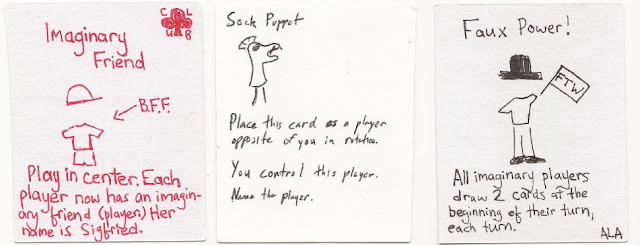 Imaginary
Friend
C L
U B
B.F.F.
Play in center. Each
player now has an imagin-
ary friend (player) Her
name is Sigfried.
Sock Puppet
Place this card as a player
opposite of you in rotation.
You control this player.
Name the player.
Faux Power!
FTW
All imaginary players
draw 2 cards at the
beginning of their turn,
each turn.
ALA